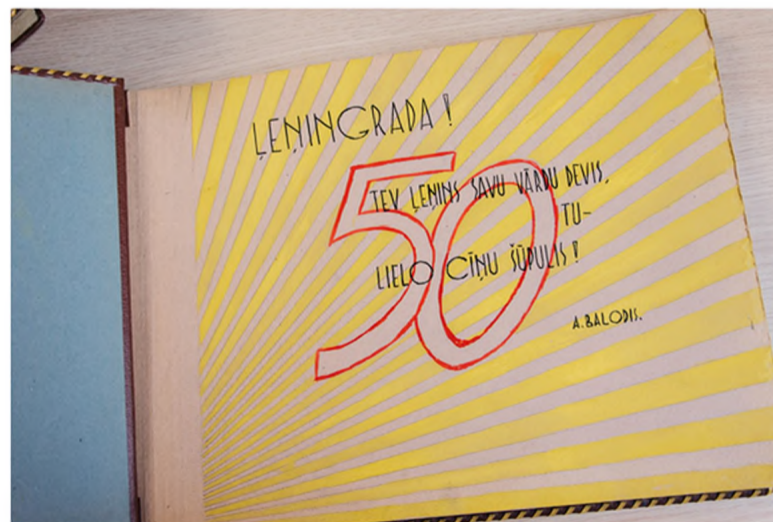 ĻEŅINGRADA!
50
TEV ĻEŅINS SAVU VĀRDU DEVIS,
TU-
LIELO CĪŅU ŠŪPULIS!
A.BALODIS.